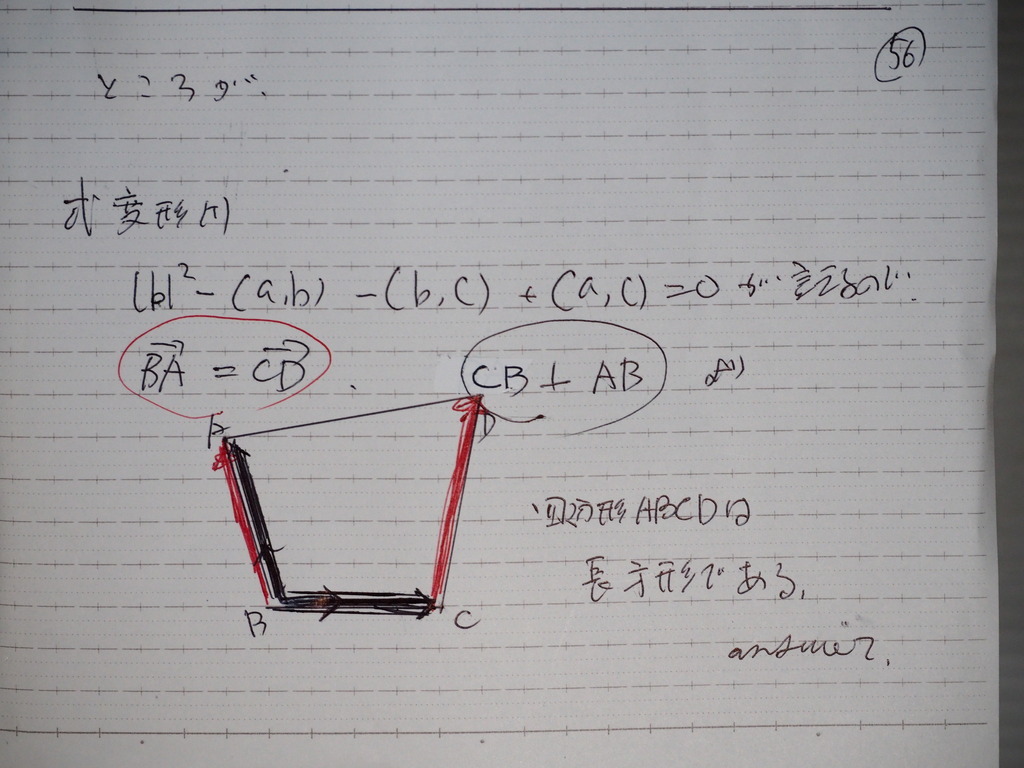 56
ところが、
式変形から
|b|² - (a,b) - (b,c) + (a,c) = 0 が言えるので、
BA = CD . CB ⊥ AB より
A
D
B
C
四方形ABCDは
長方形である.
answer